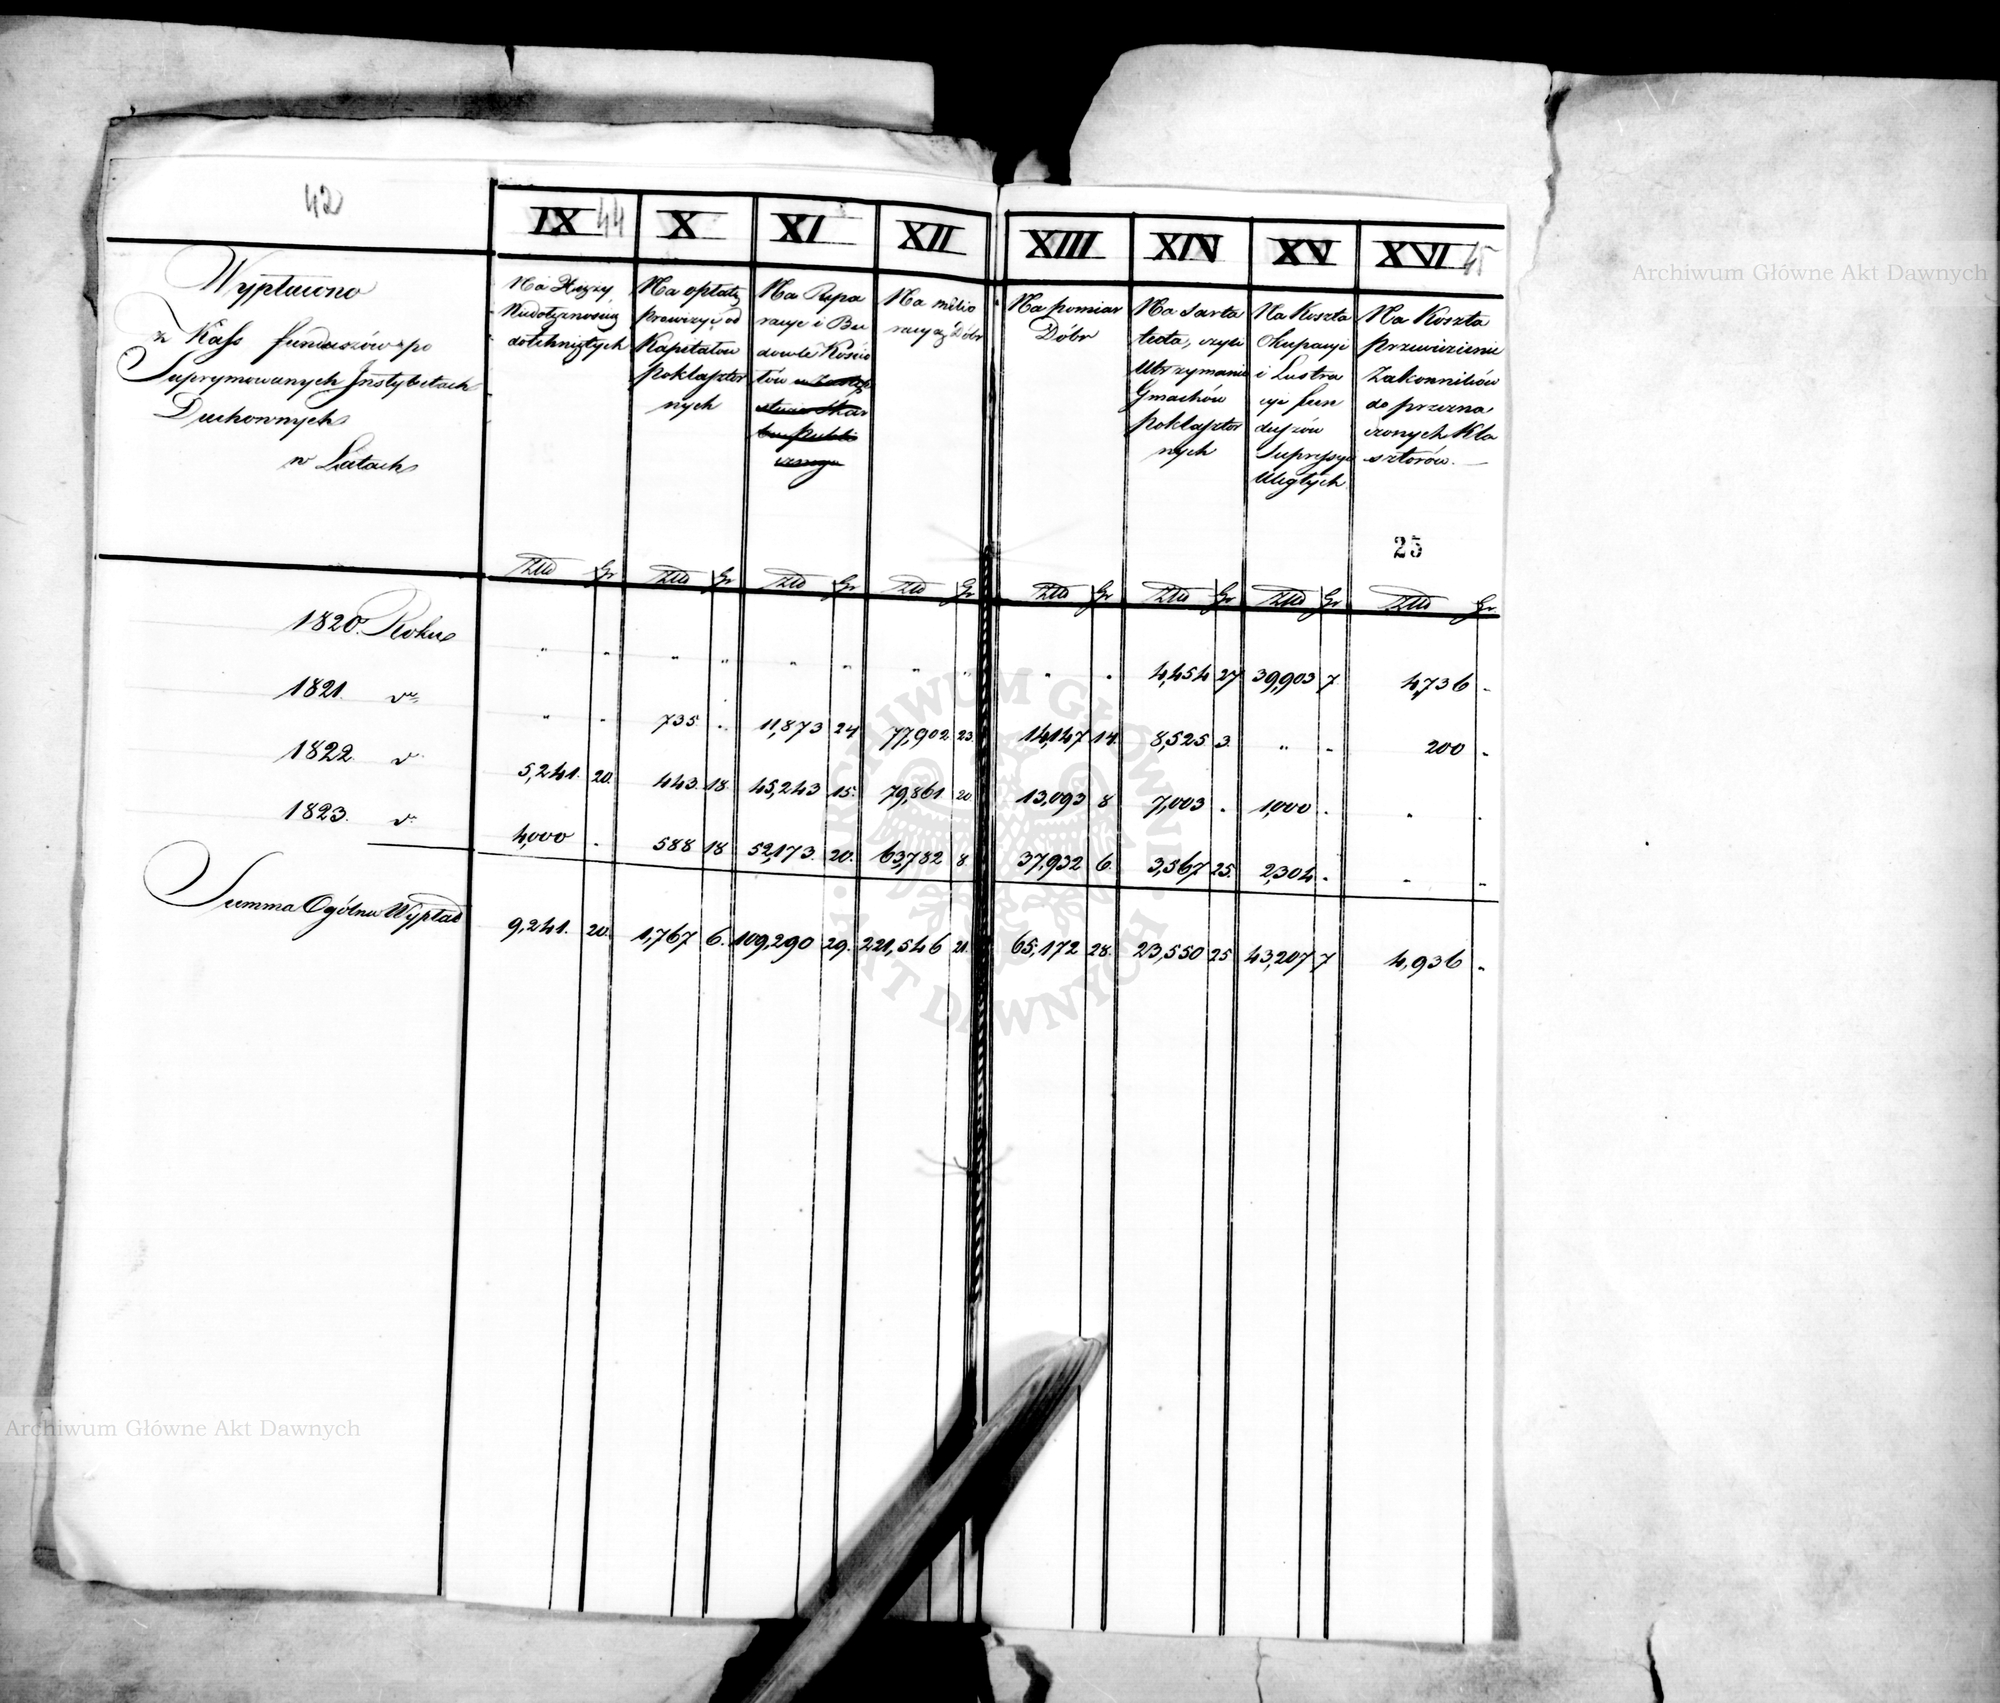 42
IX 44 X XI XII XIII XIV XV XVI 45
Wypłacono
z Kass funduszów po
Suprymowanych Instytutach
Duchownych
w Latach
Na Xięży
dotchniętych
Na opłatę
prowizyi od
Kapitałów
poklasztor
nych
Na Repa
racye i Bu
dowle Kościo
łów
Na melio
racyą Dóbr
Na pomiar
Dóbr
Na Sarta
tecta, czyli
Utrzymanie
Gmachów
poklasztor
nych
Na Koszta
Okupacyi
i Lustra
cyi fun
duszów
Supressyi
Uległych
Na Koszta
przewiezienia
Zakonników
do przezna
czonych Kla
sztorów.
25
Złto Gr Złto Gr Złto Gr Złto Gr Złto Gr Złto Gr Złto Gr Złto Gr
1820. Roku " " " " " " " " " " 4,454 27 39,903 7 4,736 "
1821. do " " 735 " 11,873 24 77,902 23 14,147 14 8,525 3 " " 200 "
1822. do 5,241 20 443 18 45,243 15 79,861 20 13,093 8 7,003 " 1,000 " " "
1823. do 4,000 " 588 18 52,173 20 63,782 8 37,932 6 3,567 25 2,304 " " "
Summa Ogólna Wypłat 9,241 20 1,767 6 109,290 29 221,546 21 65,172 28 23,550 25 43,207 7 4,936 "
Archiwum Główne Akt Dawnych
Archiwum Główne Akt Dawnych
ARCHIWUM GŁÓWNE AKT DAWNYCH